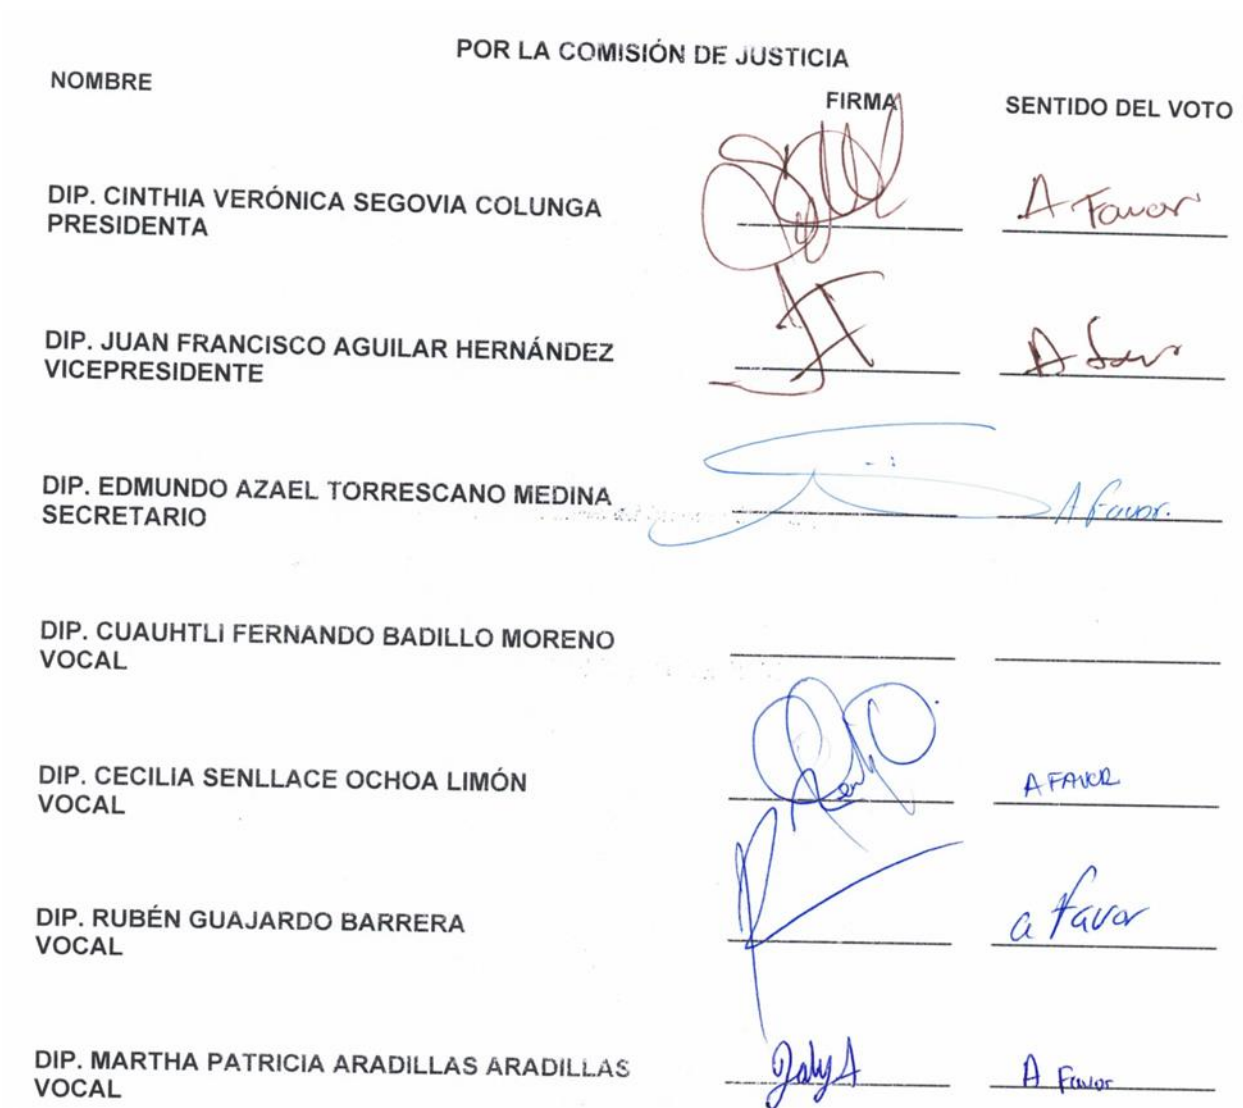 POR LA COMISIÓN DE JUSTICIA
NOMBRE
FIRMA
SENTIDO DEL VOTO
DIP. CINTHIA VERÓNICA SEGOVIA COLUNGA
PRESIDENTA
A Favor
DIP. JUAN FRANCISCO AGUILAR HERNÁNDEZ
VICEPRESIDENTE
A favor
DIP. EDMUNDO AZAEL TORRESCANO MEDINA
SECRETARIO
A Favor.
DIP. CUAUHTLI FERNANDO BADILLO MORENO
VOCAL
DIP. CECILIA SENLLACE OCHOA LIMÓN
VOCAL
A FAVOR
DIP. RUBÉN GUAJARDO BARRERA
VOCAL
a favor
DIP. MARTHA PATRICIA ARADILLAS ARADILLAS
VOCAL
A Favor